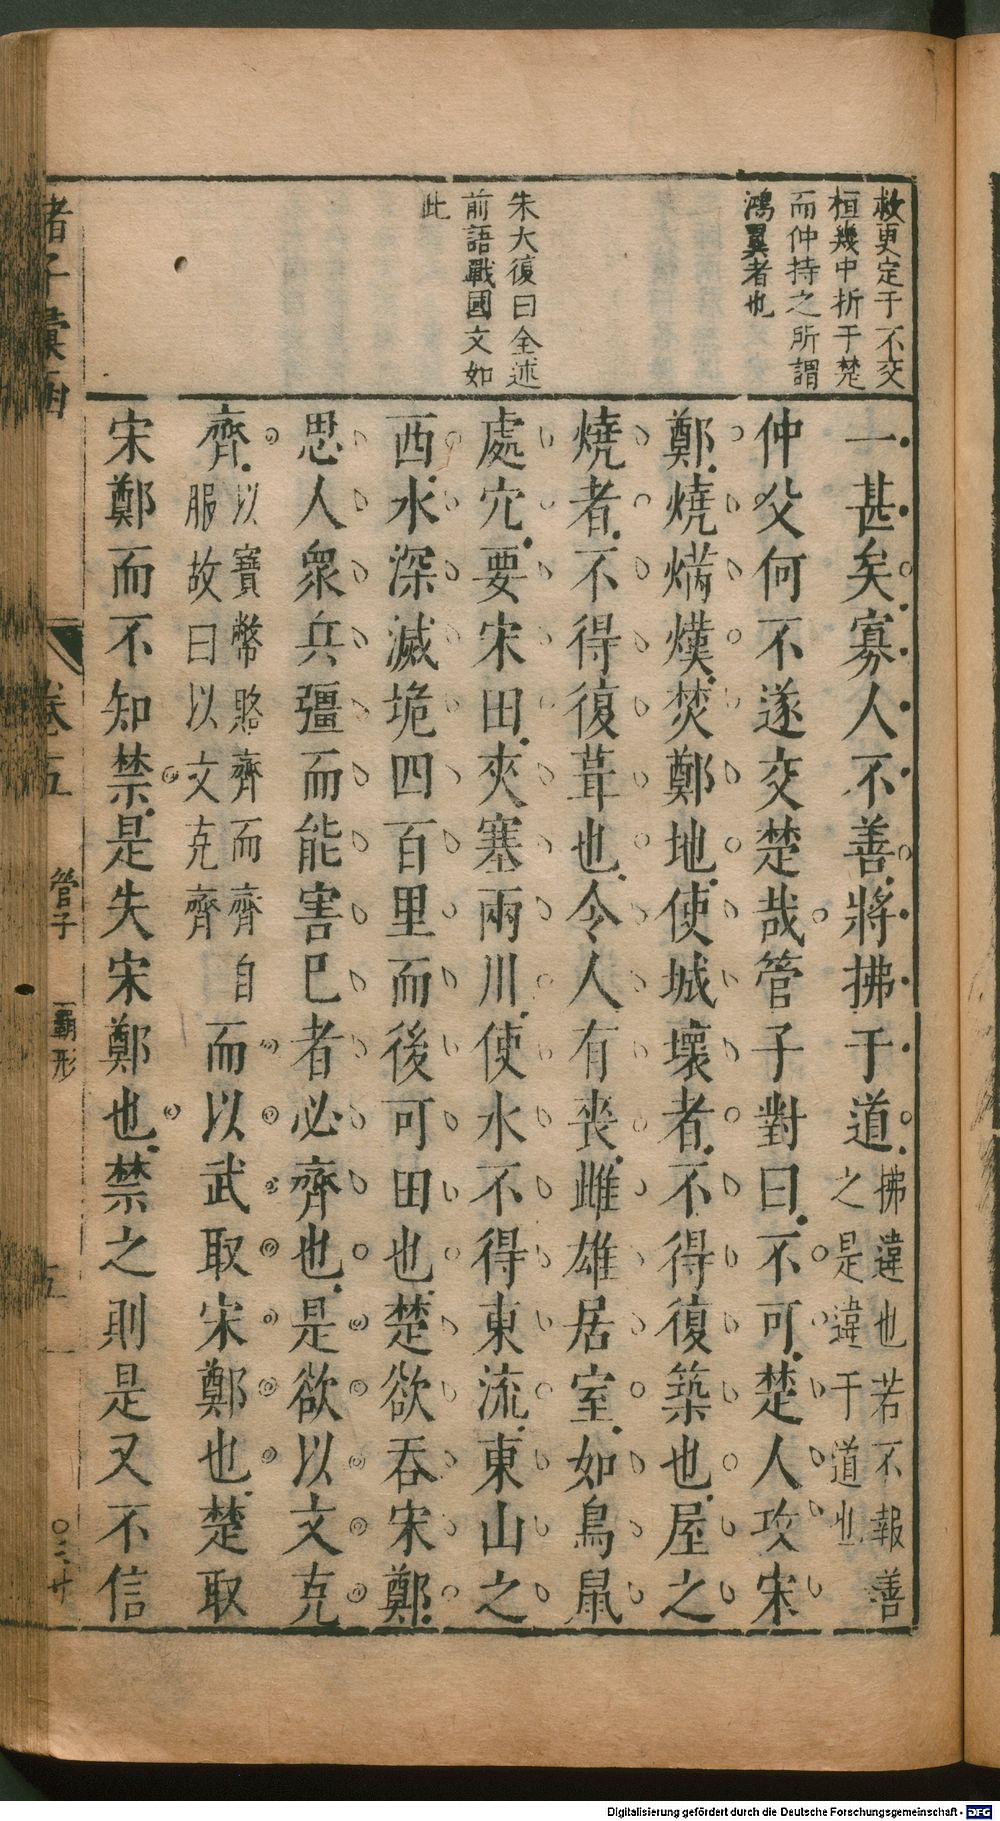 救更定于不交
桓幾中折于楚
而仲持之所謂
鴻翼者也
朱大復曰全述
前語戰國文如
此
一甚矣寡人不善將拂于道拂違也若不報善
之是違于道也
仲父何不遂交楚哉管子對曰不可楚人攻宋
鄭燒焫熯焚鄭地使城壞者不得復築也屋之
燒者不得復葺也令人有喪雌雄居室如鳥鼠
處穴要宋田夾塞兩川使水不得東流東山之
西水深滅垝四百里而後可田也楚欲吞宋鄭
思人衆兵彊而能害已者必齊也是欲以文克
齊以寶幣賂齊而齊自
服故曰以文克齊而以武取宋鄭也楚取
宋鄭而不知禁是失宋鄭也禁之則是又不信
諸子彙函
卷五
管子
霸形
五
Digitalisierung gefördert durch die Deutsche Forschungsgemeinschaft - DFG